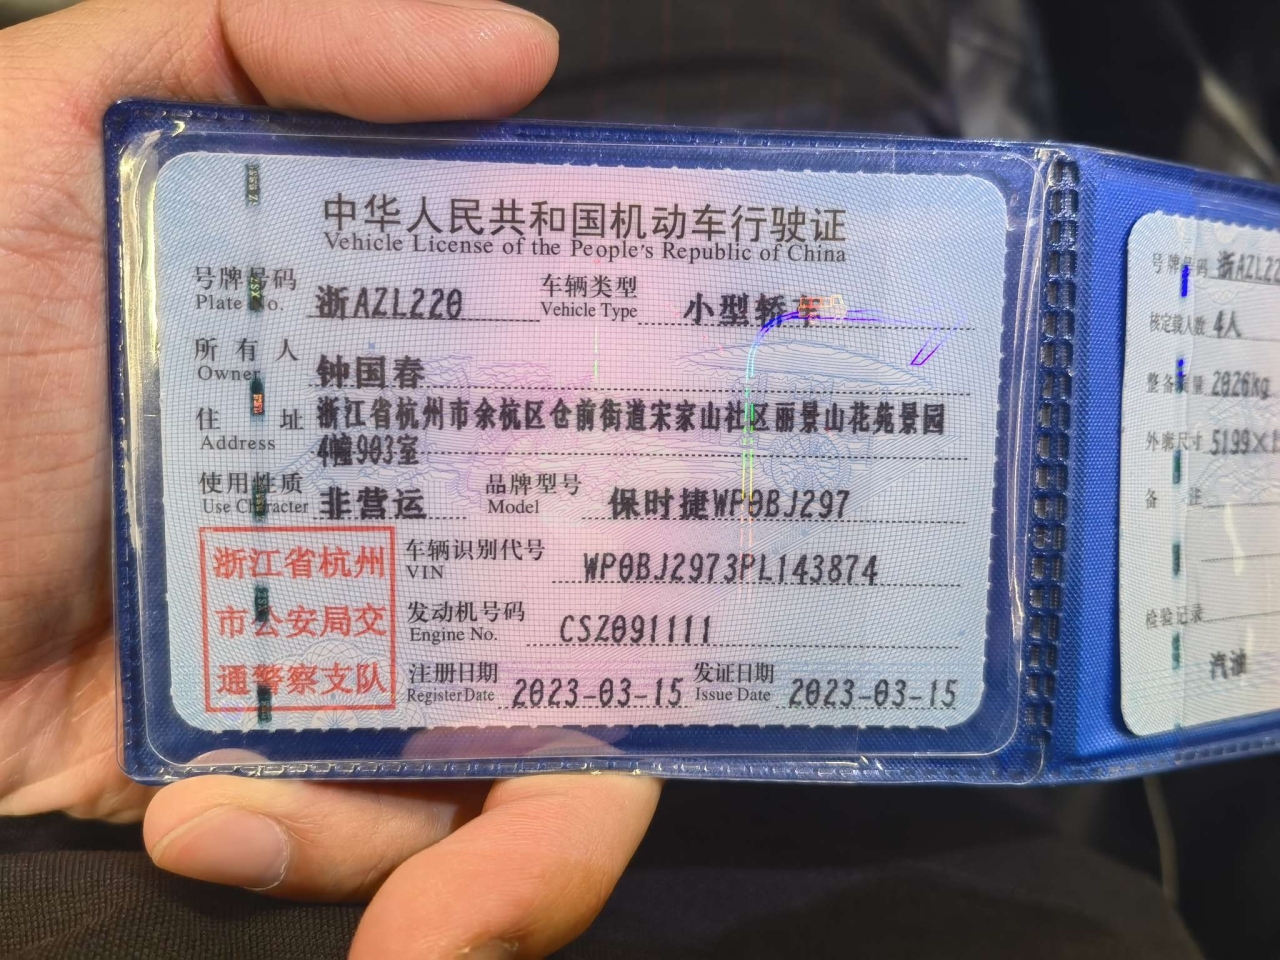 中华人民共和国机动车行驶证
Vehicle License of the People's Republic of China
号牌号码 浙AZL220 车辆类型 小型轿车
Plate No. Vehicle Type
所有人 钟国春
Owner
住址 浙江省杭州市余杭区仓前街道宋家山社区丽景山花苑景园
Address 4幢903室
使用性质 非营运 品牌型号 保时捷WP0BJ297
Use Character Model
浙江省杭州
市公安局交
通警察支队
车辆识别代号 WP0BJ2973PL143874
VIN
发动机号码 CSZ091111
Engine No.
注册日期 2023-03-15 发证日期 2023-03-15
Register Date Issue Date
号牌号码 浙AZL22
核定载人数 4人
整备质量 2026kg
外廓尺寸 5199×1
备注
检验记录
汽油